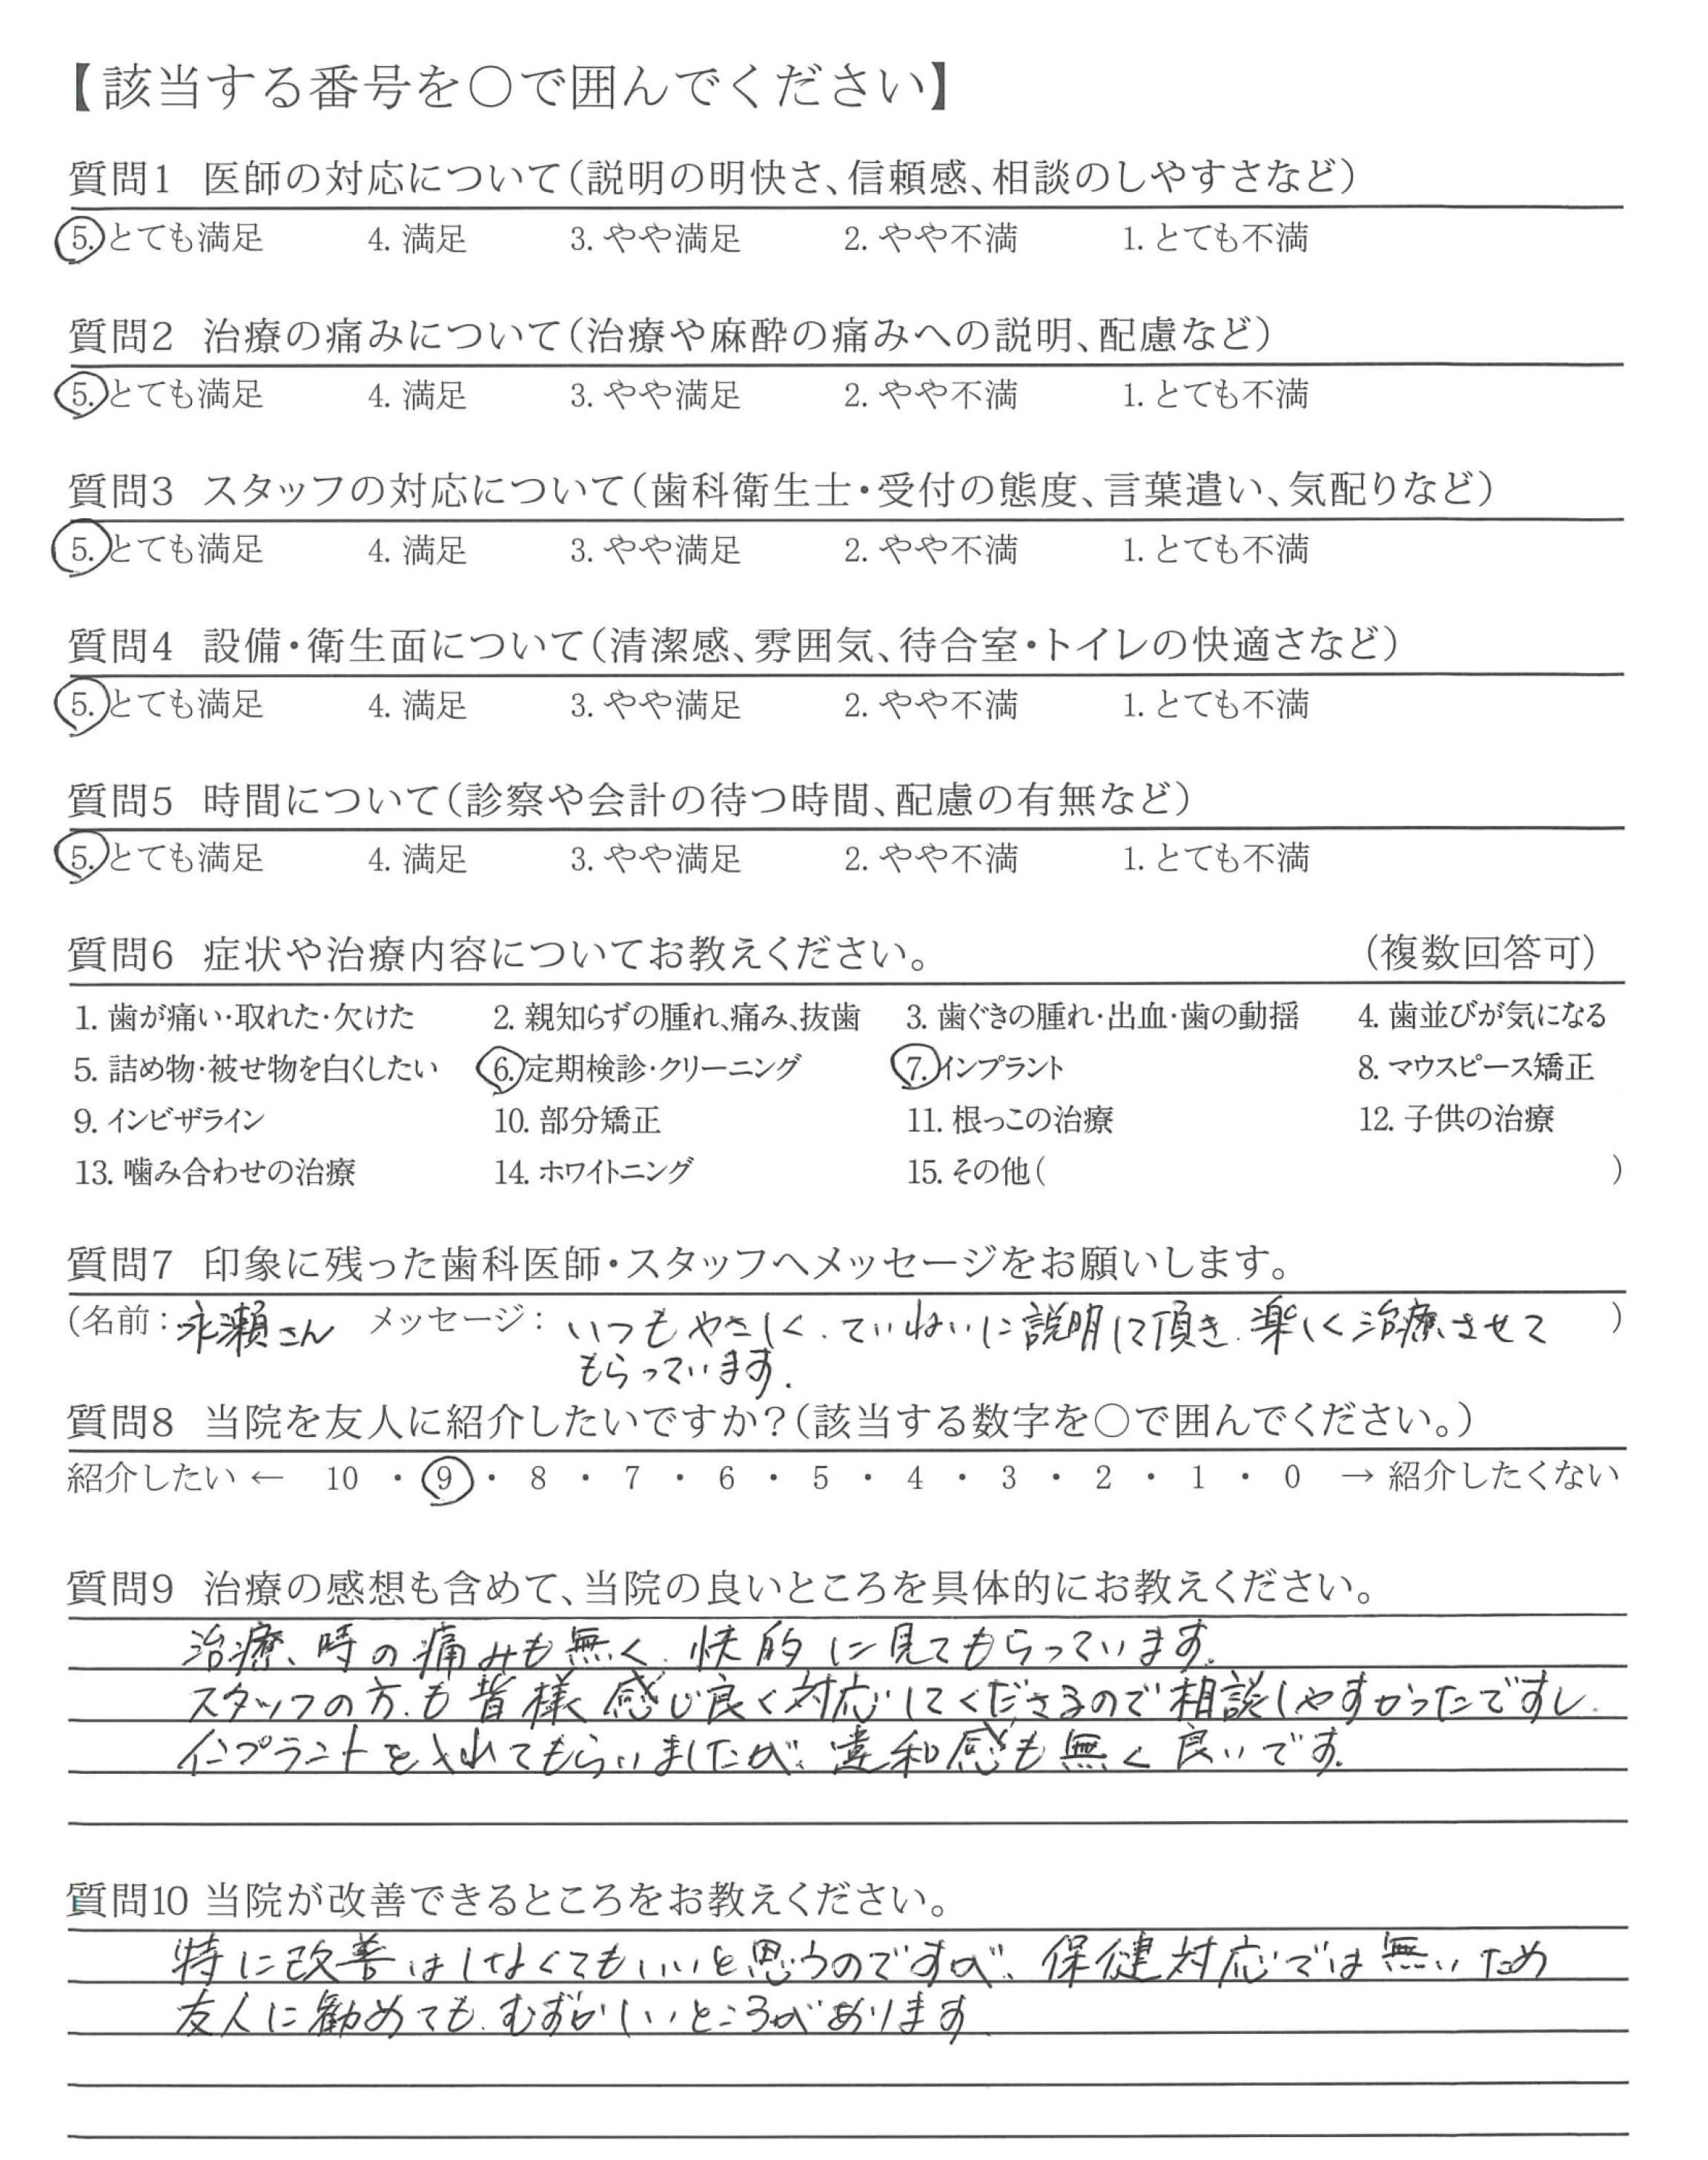 【該当する番号を〇で囲んでください】
質問1 医師の対応について（説明の明快さ、信頼感、相談のしやすさなど）
5. とても満足 4. 満足 3. やや満足 2. やや不満 1. とても不満
質問2 治療の痛みについて（治療や麻酔の痛みへの説明、配慮など）
5. とても満足 4. 満足 3. やや満足 2. やや不満 1. とても不満
質問3 スタッフの対応について（歯科衛生士・受付の態度、言葉遣い、気配りなど）
5. とても満足 4. 満足 3. やや満足 2. やや不満 1. とても不満
質問4 設備・衛生面について（清潔感、雰囲気、待合室・トイレの快適さなど）
5. とても満足 4. 満足 3. やや満足 2. やや不満 1. とても不満
質問5 時間について（診察や会計の待つ時間、配慮の有無など）
5. とても満足 4. 満足 3. やや満足 2. やや不満 1. とても不満
質問6 症状や治療内容についてお教えください。 （複数回答可）
1. 歯が痛い・取れた・欠けた 2. 親知らずの腫れ、痛み、抜歯 3. 歯ぐきの腫れ・出血・歯の動揺 4. 歯並びが気になる
5. 詰め物・被せ物を白くしたい 6. 定期検診・クリーニング 7. インプラント 8. マウスピース矯正
9. インビザライン 10. 部分矯正 11. 根っこの治療 12. 子供の治療
13. 噛み合わせの治療 14. ホワイトニング 15. その他（ ）
質問7 印象に残った歯科医師・スタッフへメッセージをお願いします。
（名前：永瀬さん メッセージ：いつもやさしく、ていねいに説明して頂き、楽しく治療させて ）
もらっています。
質問8 当院を友人に紹介したいですか？（該当する数字を〇で囲んでください。）
紹介したい ← 10 ・ 9 ・ 8 ・ 7 ・ 6 ・ 5 ・ 4 ・ 3 ・ 2 ・ 1 ・ 0 → 紹介したくない
質問9 治療の感想も含めて、当院の良いところを具体的にお教えください。
治療、時の痛みも無く、快的に見てもらっています。
スタッフの方も皆様感じ良く対応してくださるので相談しやすかったですし、
インプラントを入れてもらいましたが、違和感も無く良いです。
質問10 当院が改善できるところをお教えください。
特に改善はしなくてもいいと思うのですが、保健対応では無いため
友人に勧めても、むずかしいところがあります